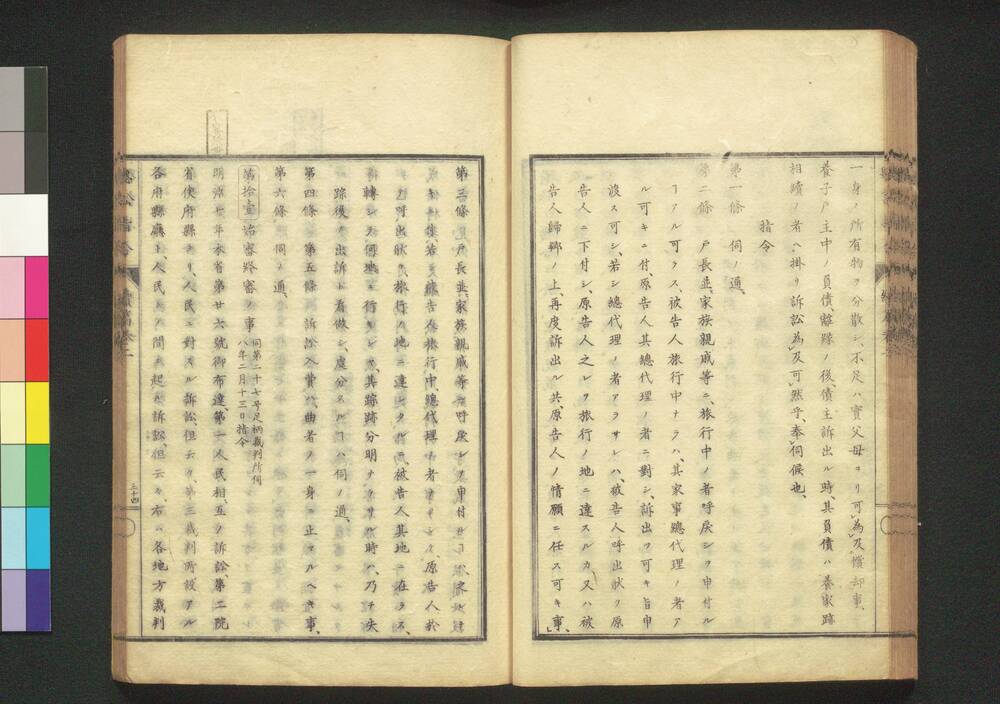 一身ノ所有物ヲ分散シ、不足ハ實父母ヨリ可為及償却事、
養子戸主中ノ負債、離縁ノ後債主訴出ル時其負債ハ養家跡
相續ノ者ヘ掛リ訴訟為及可然乎、奉伺候也、
指令
第一條 伺ノ通、
第二條 戸長並家族親戚等ニ、旅行中ノ者呼戻シヲ申付ル
ヿアル可ラス、被告人旅行中ナラハ、其家事總代理ノ者ア
ル可キニ付、原告人其總代理ノ者ニ對シ、訴出ヲ可キ旨申
渡ス可シ、若シ總代理ノ者アラサレハ、被告人呼出狀ヲ原
告人ニ下付シ、原告人之レヲ旅行ノ地ニ達スルカ又ハ被
告人歸鄉ノ上、再度訴出ル共、原告人ノ情願ニ任ス可キ事、
第三條 戸長並家族親戚等ニ呼戻シヲ申付
被告人旅行中、總代理ノ者 原告人於
呼出狀 旅行ノ地ニ達シタル 被告人其地ニ在ラス、
轉シテ何地ニ行 其踪跡分明ナラサル時ハ、乃チ失
踪後ノ出訴ト看做シ、處分スルヿハ伺ノ通、
第四條 第五條 訴訟入費ハ、曲者ノ一身ニ止マルヘキ事、
第六條 伺ノ通、
第拾壹 始審終審ノ事 同第二十七号足柄裁判所伺
八年二月十三日指令
明治七年本省第廿六號御布達、第一人民相互ノ訴訟、第二院
省使府縣ヨリ、人民ニ對スル訴訟、但云々、第三裁判所設アル
各府縣廳ト、人民トノ間ニ起ル訴訟、但云々、右ハ各地方裁判
三十四